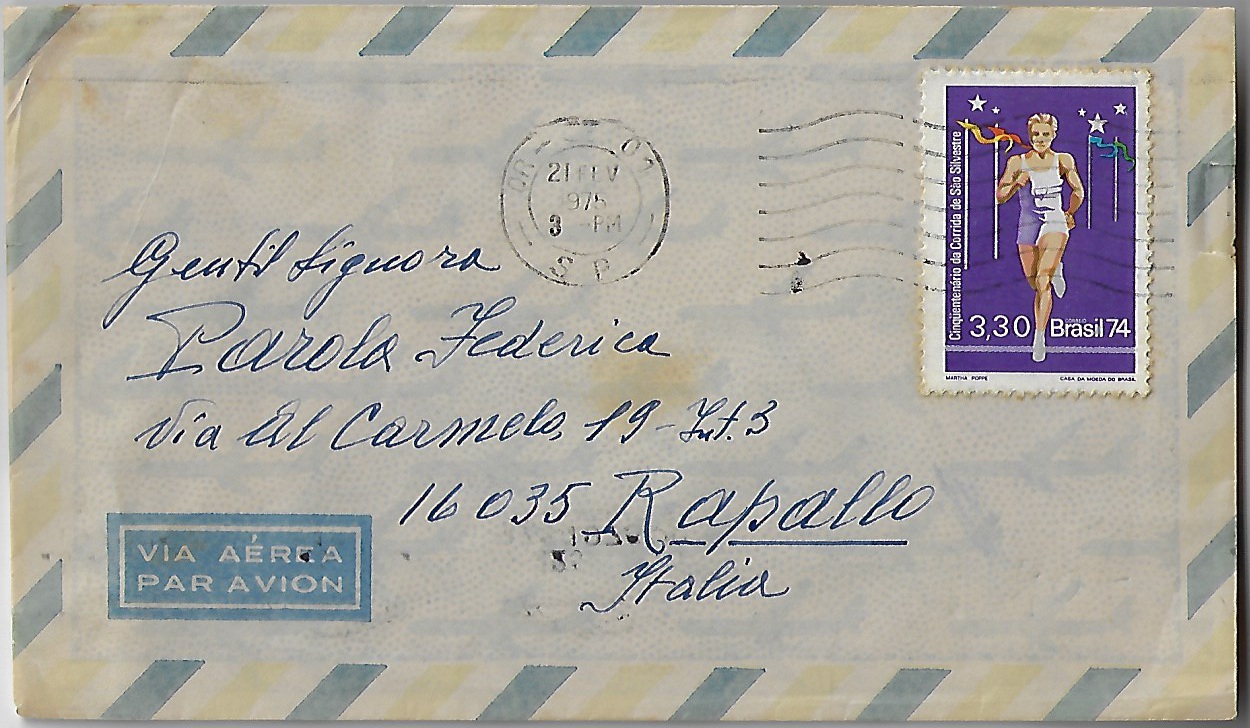 21 FEV
1975
3 -PM
S P
Cinqüentenário da Corrida de São Silvestre
3,30
CORREIO
Brasil 74
MARTHA POPPE
CASA DA MOEDA DO BRASIL
Gentil Signora
Parola Federica
Via Al Carmelo, 19 - Int. 3
16035 Rapallo
Italia
VIA AÉREA
PAR AVION